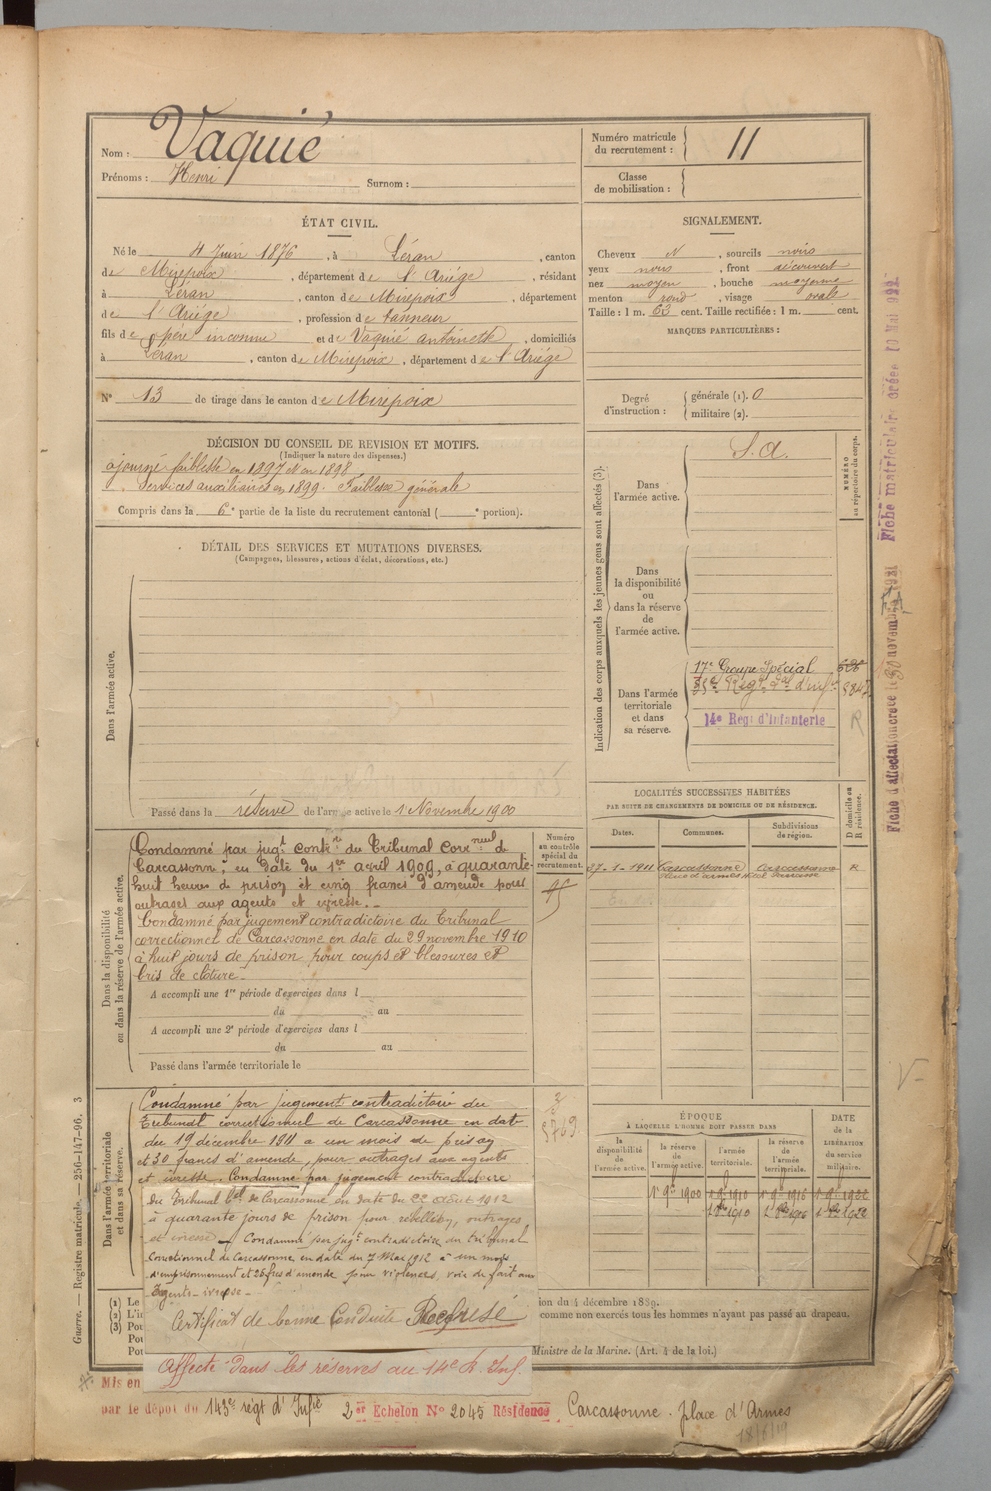 Nom : Vaquié
Prénoms : Henri Surnom :
Numéro matricule du recrutement : 11
Classe de mobilisation :
ÉTAT CIVIL.
Né le 4 Juin 1876, à Léran, canton
de Mirepoix, département de l'Ariége, résidant
à Léran, canton de Mirepoix, département
de l'Ariége, profession de tanneur
fils de père inconnu et de Vaquié antoinette, domiciliés
à Léran, canton de Mirepoix, département de l'Ariége
N° 13 de tirage dans le canton de Mirepoix
SIGNALEMENT.
Cheveux N, sourcils noirs
yeux noirs, front découvert
nez moyen, bouche moyenne
menton rond, visage ovale
Taille : 1 m. 63 cent. Taille rectifiée : 1 m. cent.
MARQUES PARTICULIÈRES :
Degré d'instruction : générale (1). 0
militaire (2).
DÉCISION DU CONSEIL DE REVISION ET MOTIFS.
(Indiquer la nature des dispenses.)
ajourné faiblesse en 1897 et en 1898
Services auxiliaires en 1899. Faiblesse générale
Compris dans la 6e partie de la liste du recrutement cantonal ( e portion).
DÉTAIL DES SERVICES ET MUTATIONS DIVERSES.
(Campagnes, blessures, actions d'éclat, décorations, etc.)
Dans l'armée active.
Passé dans la réserve de l'armée active le 1 Novembre 1900
Indication des corps auxquels les jeunes gens sont affectés (3).
NUMÉRO au répertoire du corps.
Dans l'armée active.
S.A.
Dans la disponibilité ou dans la réserve de l'armée active.
Dans l'armée territoriale et dans sa réserve.
17e Groupe Spécial
14e Regt d'Infanterie
R
Fiche d'affectation créée le 30 novembre 1921
Fiche matriculaire créée 10 Mai 922
LOCALITÉS SUCCESSIVES HABITÉES
PAR SUITE DE CHANGEMENTS DE DOMICILE OU DE RÉSIDENCE.
Dates. Communes. Subdivisions de région. D domicile ou R résidence.
27-1-1911 Carcassonne Carcassonne R
Dans la disponibilité ou dans la réserve de l'armée active.
Numéro au contrôle spécial du recrutement.
Condamné par jugt contre du Tribunal Correnel de
Carcassonne, en date du 1er avril 1909, à quarante
huit heures de prison et cinq francs d'amende pour
outrages aux agents et ivresse.-
Condamné par jugement contradictoire du Tribunal
correctionnel de Carcassonne en date du 29 novembre 1910
à huit jours de prison pour coups et blessures et
bris de cloture.
A accompli une 1re période d'exercices dans l
du au
A accompli une 2e période d'exercices dans l
du au
Passé dans l'armée territoriale le
Dans l'armée territoriale et dans sa réserve.
Condamné par jugement contradictoire du
Tribunal correctionnel de Carcassonne en date
du 19 décembre 1911 a un mois de prison
et 30 francs d'amende, pour outrages aux agents
et ivresse. Condamné par jugement contradictoire
du Tribunal Cel de Carcassonne en date du 22 août 1912
à quarante jours de prison pour rebellion, outrages
et ivresse - Condamné par jugt contradictoire du tribunal
Correctionnel de Carcassonne en date du 7 Mai 1912 à un mois
d'emprisonnement et 25 frcs d'amende pour violences, voie de fait aux
Agents - ivresse -
Certificat de bonne Conduite Refusé
Affecté dans les réserves au 14e R. Inf.
ÉPOQUE
À LAQUELLE L'HOMME DOIT PASSER DANS
la disponibilité de l'armée active. la réserve de l'armée active. l'armée territoriale. la réserve de l'armée territoriale. DATE de la LIBÉRATION du service militaire.
1er 9bre 1900 1er 9bre 1910
ion du 4 décembre 1889.
comme non exercés tous les hommes n'ayant pas passé au drapeau.
Ministre de la Marine. (Art. 4 de la loi.)
(1) Le
(2) L'in
(3) Pou
Pou
Pou
Guerre. — Registre matricule. — 256-147-96. 3
Mis en
par le dépot du 143e régt d'Infie 2er Echelon N° 2045 Résidence Carcassonne. place d'Armes
18/6/19